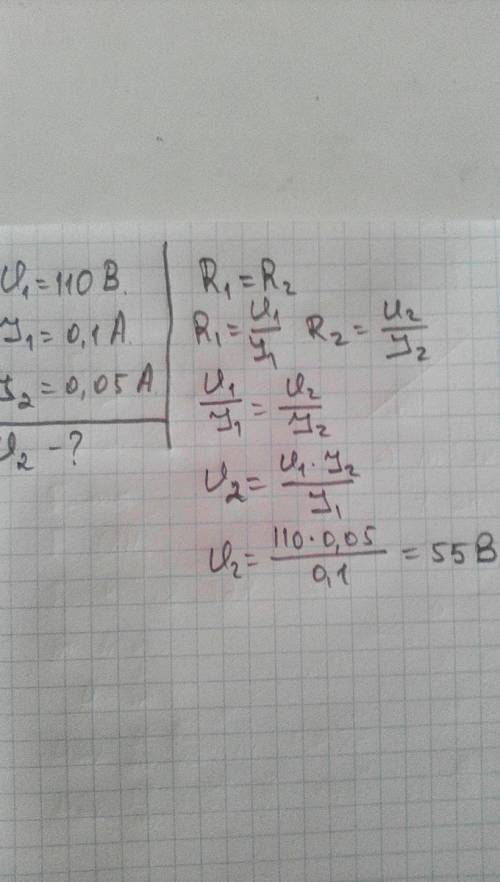 U₁ = 110 В.
I₁ = 0,1 А.
I₂ = 0,05 А
U₂ - ?
R₁ = R₂
R₁ = U₁/I₁ R₂ = U₂/I₂
U₁/I₁ = U₂/I₂
U₂ = U₁·I₂/I₁
U₂ = 110·0,05/0,1 = 55 В